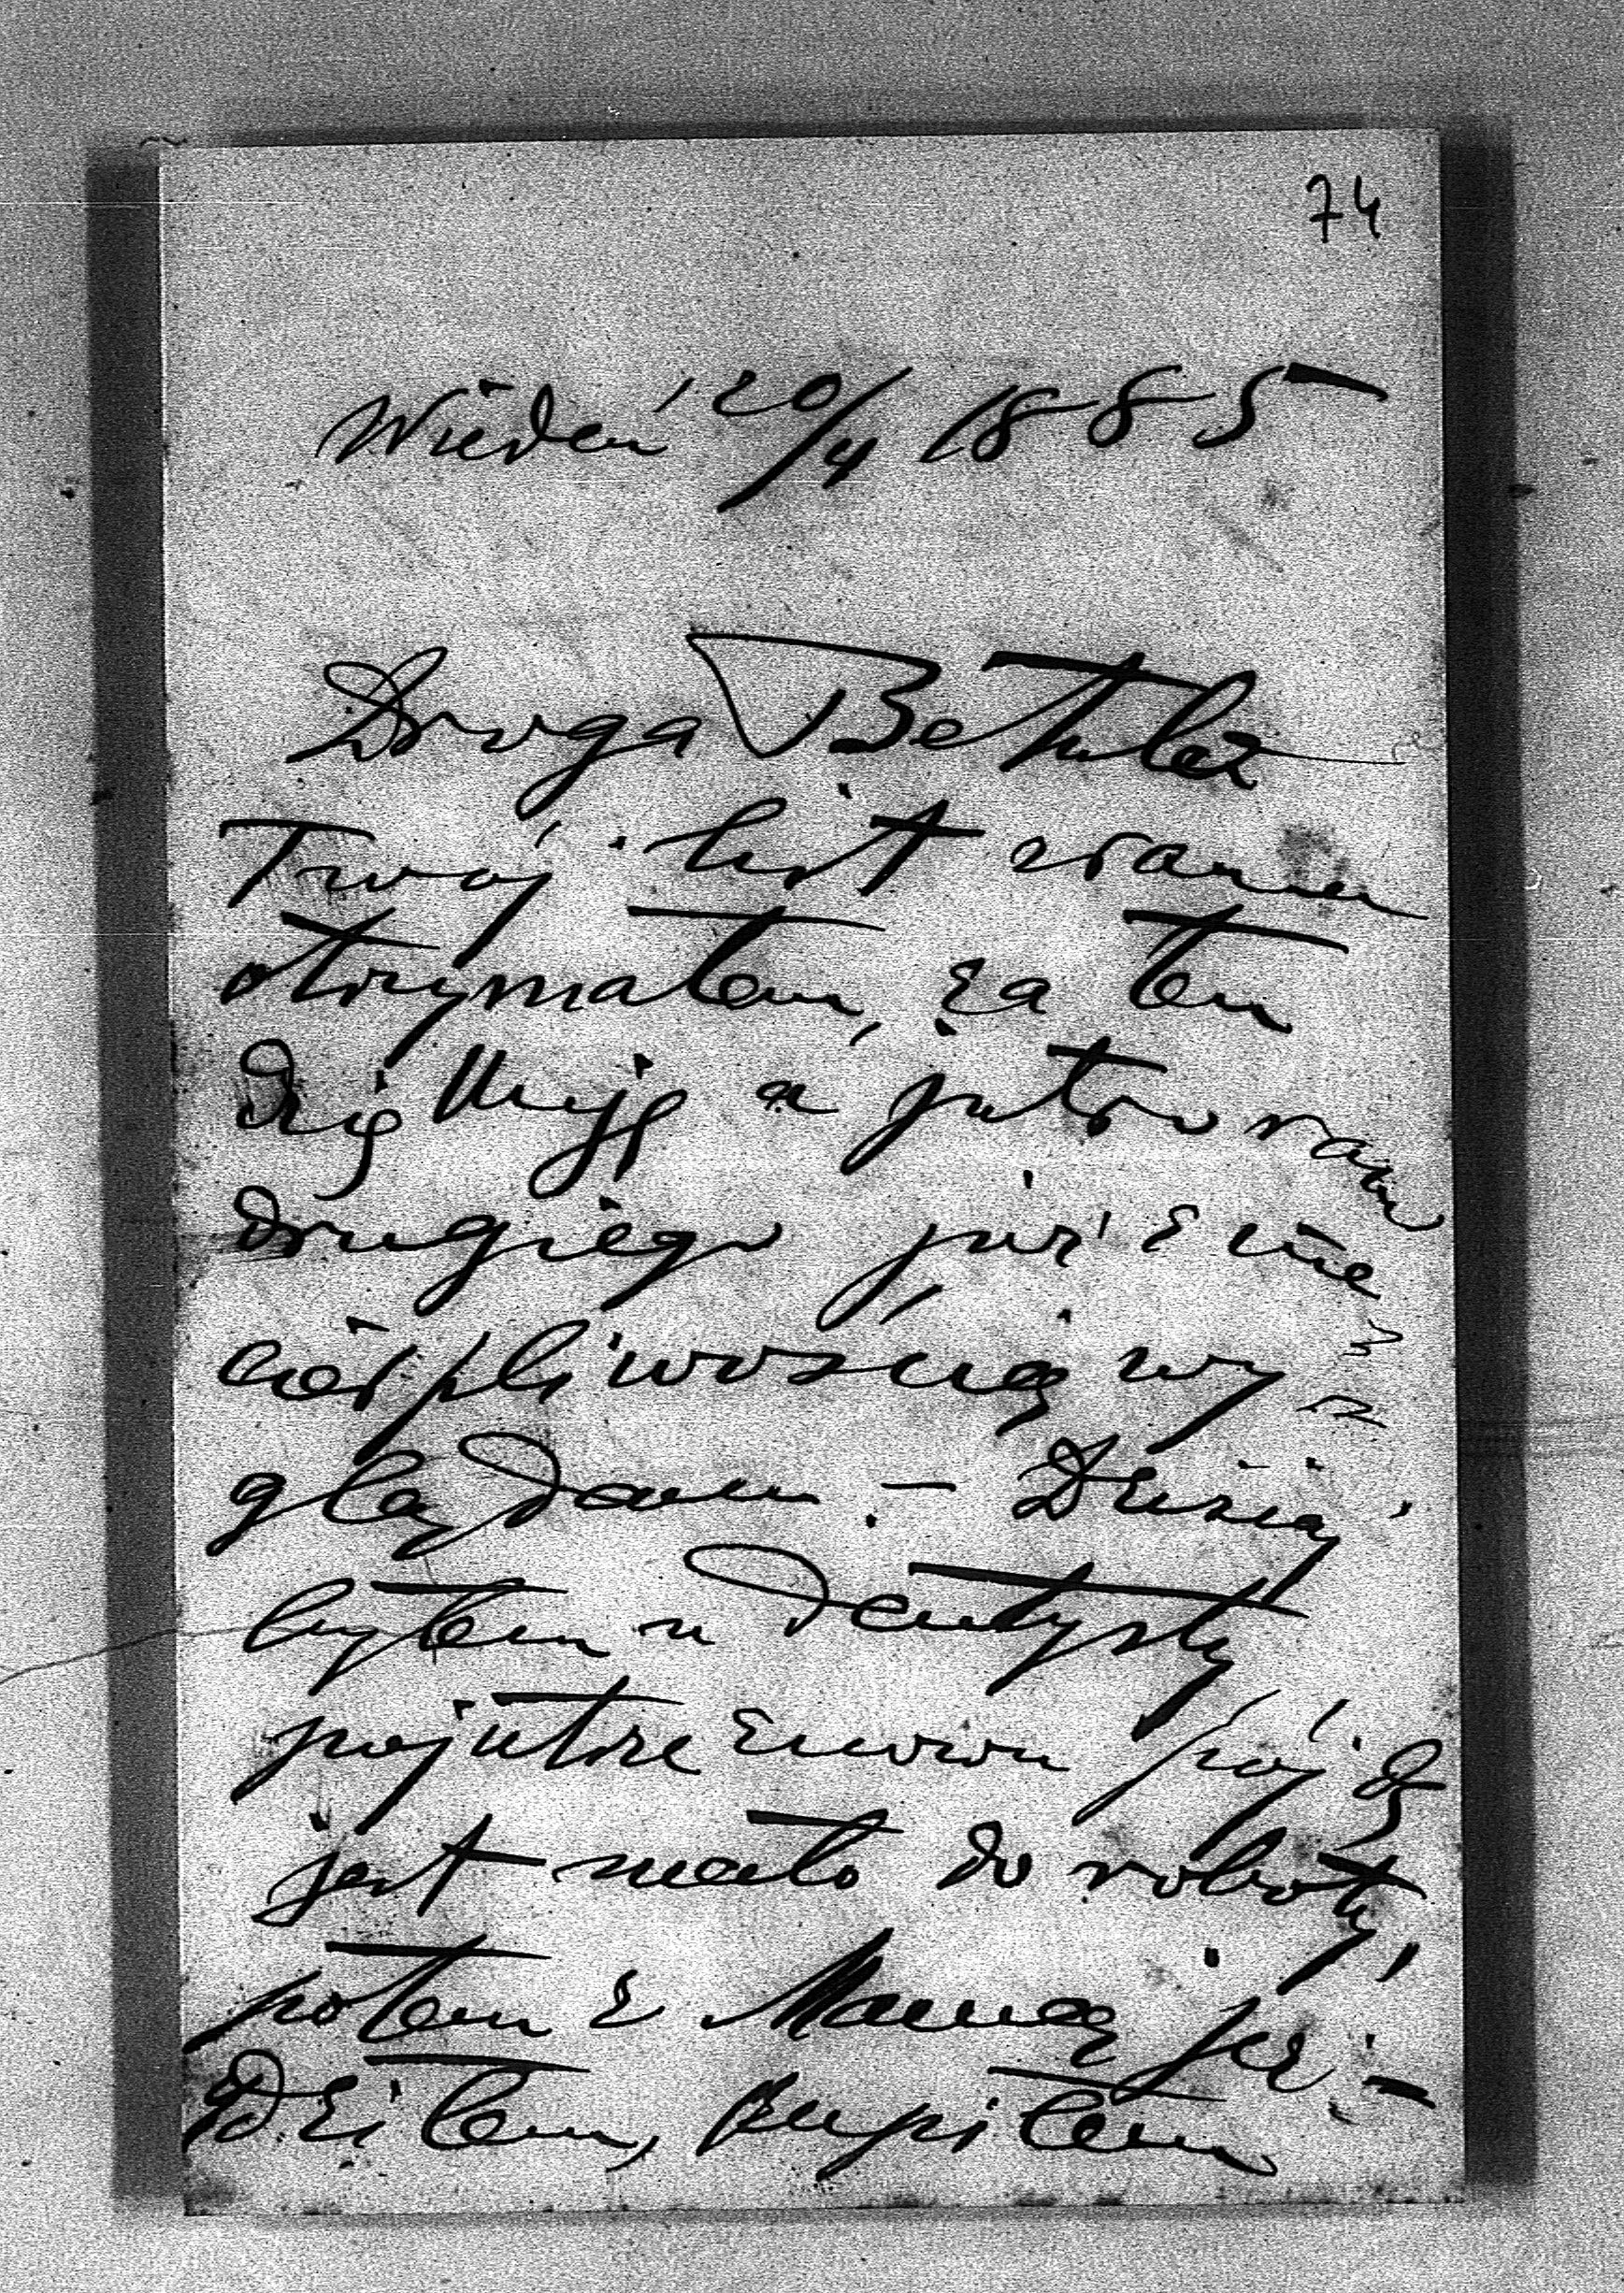 74
Wiedeń 20/4 1885
Droga Betuleź
Twój list zranu
otrzymałem, za ten
dziękuję a jutro ranu
drugiego już z nie
cierpliwością wy
glądam. – Dzisiaj
byłem u Dentysty
pojutrze znowu pójdę
jest mało do roboty,
potem z Mamą jeź-
dziłem, kupiłem